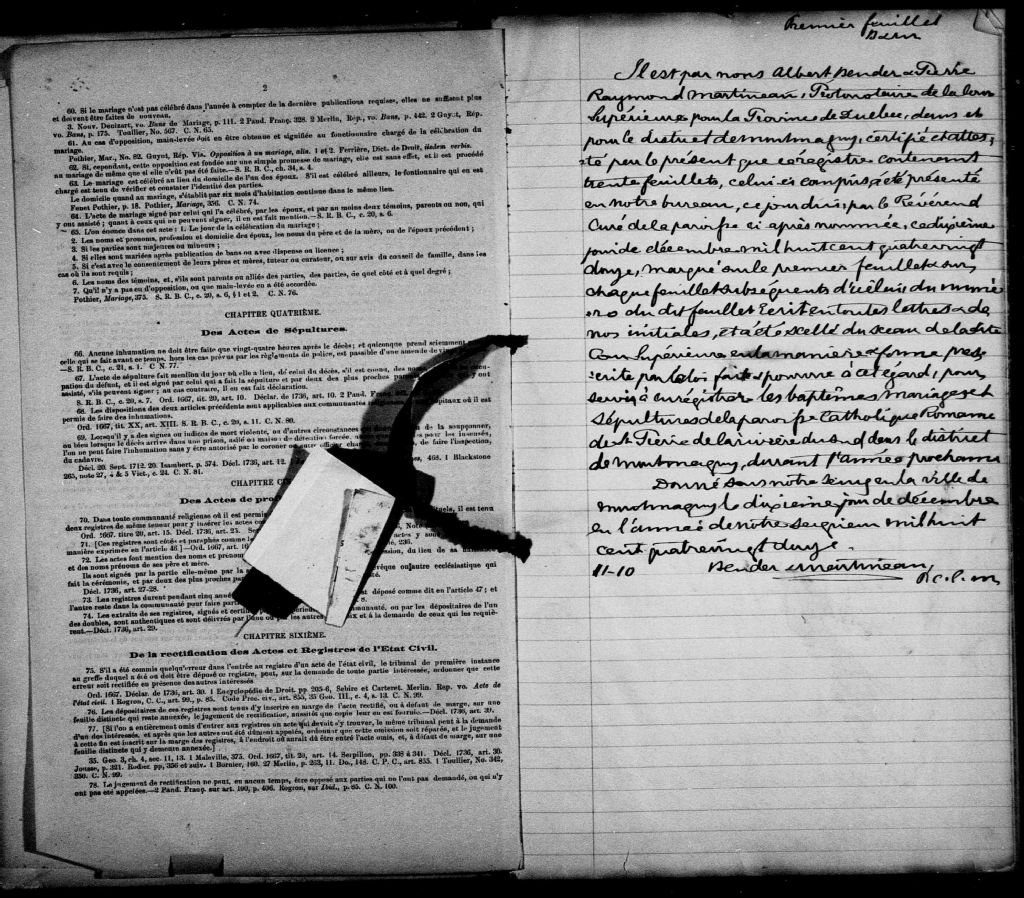 2
60. Si le mariage n'est pas célébré dans l'année à compter de la dernière publications requises, elles ne suffisent plus
et doivent être faites de nouveau.
3. Nouv. Denizart, vo. Bans de Mariage, p. 111. 2 Pand. Franç. 328. 2 Merlin, Rep., vo. Bans, p. 442. 2 Guyot, Rép.
vo. Bans, p. 175. Toullier, No. 567. C. N. 65.
61. Au cas d'opposition, main-levée doit en être obtenue et signifiée au fonctionnaire chargé de la célébration du
mariage.
Pothier, Mar., No. 82. Guyot, Rép. Vis. Opposition à un mariage, alin. 1 et 2. Ferrière, Dict. de Droit, iisdem verbis.
62. Si, cependant, cette opposition est fondée sur une simple promesse de mariage, elle est sans effet, et il est procédé
au mariage de même que si elle n'eût pas été faite.—S. R. B. C., ch. 34, s. 4.
63. Le mariage est célébré au lieu du domicile de l'un des époux. S'il est célébré ailleurs, le fonctionnaire qui en est
chargé est tenu de vérifier et constater l'identité des parties.
Le domicile quant au mariage, s'établit par six mois d'habitation continus dans le même lieu.
Fenet Pothier, p. 18. Pothier, Mariage, 356. C. N. 74.
64. L'acte de mariage signé par celui qui l'a célébré, par les époux, et par au moins deux témoins, parents ou non, qui
y ont assisté; quant à ceux qui ne peuvent signer, il en est fait mention.—S. R. B. C., c. 20, s. 6.
65. L'on énonce dans cet acte: 1. Le jour de la célébration du mariage;
2. Les noms et prenoms, profession et domicile des époux, les noms du père et de la mère, ou de l'époux précédent;
3. Si les parties sont majeures ou mineurs;
4. Si elles sont mariées après publication de bans ou avec dispense ou licence;
5. Si c'est avec le consentement de leurs pères et mères, tuteur ou curateur, ou sur avis du conseil de famille, dans les
cas où ils sont requis;
6. Les noms des témoins, et, s'ils sont parents ou alliés des parties, de quel côté et à quel degré;
7. Qu'il n'y a pas eu d'opposition, ou que main-levée en a été accordée.
Pothier, Mariage, 375. S. R. B. C., c. 20, s. 6, § 1 et 2. C. N. 76.
CHAPITRE QUATRIÈME.
Des Actes de Sépultures.
66. Aucune inhumation ne doit être faite que vingt-quatre heures après le décès; et quiconque prend sciemment
celle qui se fait avant ce temps, hors les cas prévus par les règlements de police, est passible d'une amende de vingt
—S. R. B. C., c. 21, s. 1. C. N. 77.
67. L'acte de sépulture fait mention du jour où elle a lieu, de celui du décès, s'il est connu, des
pation du défunt, et il est signé par celui qui a fait la sépulture et par deux des plus proches y ont
assisté, s'ils peuvent signer; au cas contraire, il en est fait déclaration.
S. R. B. C., c. 20, s. 7. Ord. 1667, tit. 20, art. 10. Déclar. de 1736, art. 10. 2 Pand.
68. Les dispositions des deux articles précédents sont applicables aux communautés où il est
permis de faire des inhumations.
Ord. 1667, tit. XX, art. XIII. S. R. B. C., c. 20, s. 11. C. N. 80.
69. Lorsqu'il y a des signes ou indices de mort violente, ou d'autres circonstances de la soupçonner,
ou bien lorsque le décès arrive dans une prison, asile ou maison de détention forcée, pour les insensés,
l'on ne peut faire l'inhumation sans y être autorisé par le coroner de faire l'inspection,
du cadavre.
Déci. 20. Sept. 1712. 20. Isambert, p. 574. Décl. 1736, art. 12. 468. 1 Blackstone
265, note 27, 4 & 5 Vict., c. 24. C. N. 81.
CHAPITRE
Des Actes de
70. Dans toute communauté religieuse où il est permis il est tenu
deux registres de même teneur pour y insérer les actes
Ord. 1667. titre 20, art. 15. Décl. 1736, art. 25.
71. [Ces registres sont cotés et paraphés comme actes y sont
manière exprimée en l'article 46.]—Ord. 1667, art. 236.
72. Les actes font mention des noms et prénoms du lieu de sa
et des noms prénoms de ses père et mère.
Ils sont signés par la partie elle-même par ou autre ecclésiastique qui
fait la cérémonie, et par deux des plus proches
Décl. 1736, art. 27-28.
73. Les registres durent pendant cinq années déposé comme dit en l'article 47; et
l'autre reste dans la communauté pour faire
74. Les extraits de ses registres, signés et par les dépositaires de l'un
des doubles, sont authentiques et sont délivrés par l'une ou et à la demande de ceux qui les requiè-
rent.—Décl. 1736, art. 29.
CHAPITRE SIXIÈME.
De la rectification des Actes et Registres de l'Etat Civil.
75. S'il a été commis quelqu'erreur dans l'entrée au registre d'un acte de l'état civil, le tribunal de première instance
au greffe duquel a été ou doit être déposé ce registre, peut, sur la demande de toute partie intéressée, ordonner que cette
erreur soit rectifiée en présence des autres intéressés
Ord. 1667. Déclar. de 1736, art. 30. 1 Encyclopédie de Droit. pp 205-6, Sebire et Carteret. Merlin. Rep. vo. Acte de
l'état civil. 1 Rogron, C. C., art. 99., p. 85. Code Proc. civ., art. 855, 35 Geo. III., c. 4, s. 13. C. N. 99.
76. Les dépositaires de ces registres sont tenus d'y inscrire en marge de l'acte rectifié, ou à defaut de marge, sur une
feuille distincte qui reste annexée, le jugement de rectification, aussitôt que copie leur en est fournie.—Décl. 1736, art. 39.
77. [Si l'on a entièrement omis d'entrer aux registres un acte qui devait s'y trouver, le même tribunal peut à la demande
d'un des intéressés, et après que les autres ont été dûment appelés, ordonner que cette omission soit réparée, et le jugement
à cette fin est inscrit sur la marge des registres, à l'endroit où aurait dû être entré l'acte omis, et, à défaut de marge, sur une
feuille distincte qui y demeure annexée.]
35. Geo. 3, ch. 4, sec. 11, 13. 1 Maleville, 373. Ord. 1667, tit. 20, art. 14. Serpillon, pp. 338 à 341. Décl. 1736, art. 30.
Jousse, p. 321. Rodier. pp, 356 et suiv. 1 Bornier, 160. 27 Merlin, p. 263, 11. Do., 148. C. P. C., art. 855. 1 Toullier, No. 342,
350. C. N. 99.
78. Le jugement de rectification ne peut, en aucun temps, être opposé aux parties qui ne l'ont pas demandé, ou qui n'y
ont pas été appelées.—2 Pand. Franç. sur art. 100, p. 406. Rogron, sur Ibid., p. 85. C. N. 100.
Premier feuillet
B & m
Il est par nous Albert Bender & Pierre
Raymond Martineau, Protonotaire de la Cour
Supérieure pour la Province de Québec, dans et
pour le district de Montmagny, certifié et attes-
té par le présent que ce régistre contenant
trente feuillets, celui ci compris, a été présenté
en notre bureau, ce jourdhui par le Révérend
Curé de la paroisse ci après nommée, ce dixième
jour de décembre mil huit cent quatrevingt
douze, marqué sur le premier feuillet & sur
chaque feuillet subséquents d'icelui du numé-
ro du dit feuillet Ecrit en toutes lettres & de
nos initiales, et a été scellé du sceau de la dite
Cour Supérieure en la manière & forme pres-
crite par la loi faite & pourvue à cet égard, pour
servir à enrégistrer les baptêmes Mariages et
Sépultures de la paroisse Catholique Romaine
de St Pierre de la rivière du Sud dans le district
de Montmagny, durant l'année prochaine
Donné sous notre seing en la ville de
Montmagny le dixième jour de décembre
en l'année de notre seigneur mil huit
cent quatrevingt douze.
11-10 Bender & Martineau,
P. C. S. M